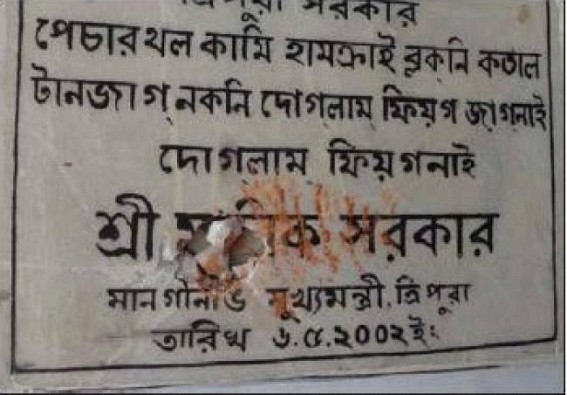 ত্রিপুরা সরকার
পেচারথল কামি হামক্রাই ব্লকনি কতাল
টানজাগ নকনি দোগলাম ফিয়গ জাগনাই
দোগলাম ফিয়গনাই
শ্রী সরকার
মানগৌনাঙ মুখ্যমন্ত্রী, ত্রিপুরা
তারিখ ৬.৫.২০০২ ইং